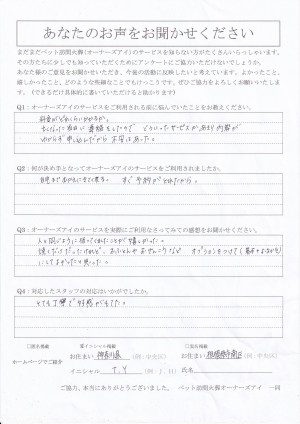 あなたのお声をお聞かせください
まだまだペット訪問火葬(オーナーズアイ)のサービスを知らない方がたくさんいらっしゃいます。
その方たちに少しでも知っていただくためにアンケートにご協力いただけないでしょうか。
あなた様のご意見をお聞かせいただき、今後の活動に反映したいと考えています。よかったこと、
嬉しかったこと、どのような些細なことでもけっこうです。ぜひご協力をよろしくお願いいたしま
す。(できるだけ具体的に書いていただけると助かります)
Q1:オーナーズアイのサービスをご利用される前に悩んでいたことをお教えください。
料金がどれくらいかかるか。
わからず申し込んだから 不安はあった。
Q2:何が決め手となってオーナーズアイのサービスをご利用されましたか。
すぐ予約がとれたから。
Q3:オーナーズアイのサービスを実際にご利用なさってみての感想をお聞かせください。
人と同じように扱ってくれたことが嬉しかった。
にしてよかったと思った。
Q4:対応したスタッフの対応はいかがでしたか。
とても丁寧で好感がもてた。
ホームページでご紹介
お住まい 神奈川県 (例:中央区)
お住まい 相模原市南区 (例:中央区)
イニシャル T.Y (例:J.H)
氏名
ご協力、本当にありがとうございました。 ペット訪問火葬オーナーズアイ 一同